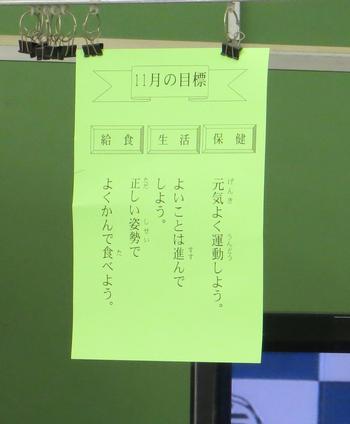 11月の目標
保健
生活
給食
元気よく運動しよう。
よいことは進んで
しよう。
正しい姿勢で
よくかんで食べよう。